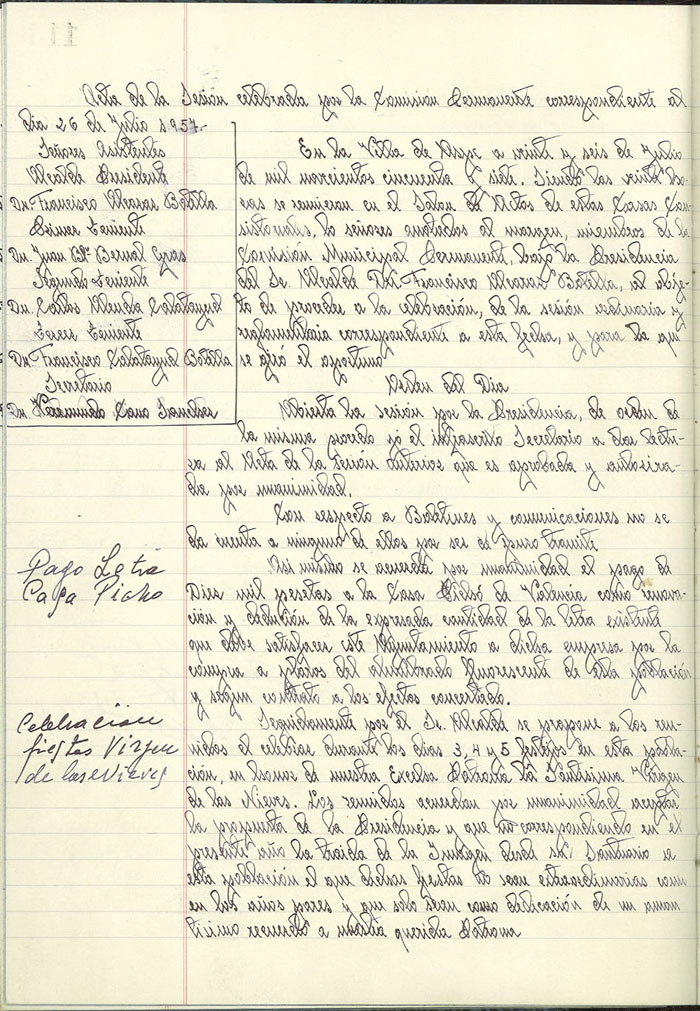 11
Acta de la Sesión celebrada por la Comisión Permanente correspondiente al
dia 26 de Julio 1.957.-
Señores Asistentes
Alcalde Presidente
Dn. Francisco Alcaraz Botella
Primer Teniente
Dn. Juan Bta Bernal Cras
Segundo Teniente
Dn. Carlos Alenda Calatayud
Tercer Teniente
Dn. Francisco Calatayud Botella
Secretario
Dn. Cano Sanchez
En la Villa de Aspe a veinte y seis de Julio
de mil novecientos cincuenta y siete. Siendo las veinte ho-
ras se reunieron en el Salon de Actos de estas Casas Con-
sistoriales, lo señores anotados al margen, miembros de la
Comisión Municipal Permanente, bajo la Presidencia
del Sr. Alcalde Dn. Francisco Alcaraz Botella, al obje-
to de proceder a la celebración, de la sesión ordinaria y
reglamentaria correspondiente a esta fecha, y para la que
se giró el oportuno
Orden del Dia
Abierta la sesión por la Presidencia, de orden de
la misma procedo yó el infrascrito Secretario a dar lectu-
ra al Acta de la Sesión Anterior que es aprobada y autoriza-
da por unanimidad.
Con respecto a Boletines y comunicaciones no se
da cuenta a ninguno de ellos por ser de puro tramite
Pago Letra
Casa Picho
Asi mismo se acuerda por unanimidad el pago de
Diez mil pesetas a la Casa de Valencia como renova-
ción y dedución de la expresada cantidad de la letra existente
que debe satisfacer este Ayuntamiento a dicha empresa por la
compra a plazos del alumbrado fluorescent de esta población
y según contrato a los efectos concertado.
Celebracion
fiestas Virgen
de las Nieves
Seguidamente por el Sr. Alcalde se propone a los reu-
nidos el celebrar durante los dias 3, 4 y 5 festejos en esta pobla-
ción, en honor de nuestra Excelsa Patrona la Santisima Virgen
de las Nieves. Los reunidos acuerdan por unanimidad aceptar
la propuesta de la Presidencia y que no correspondiendo en el
presente año la traida de la Imagen desde su Santuario a
esta población el que dichas fiestas no sean extraordinarias como
en los años pares y que solo sean como dedicación de un aman
tisimo recuerdo a nuestra querida Patrona